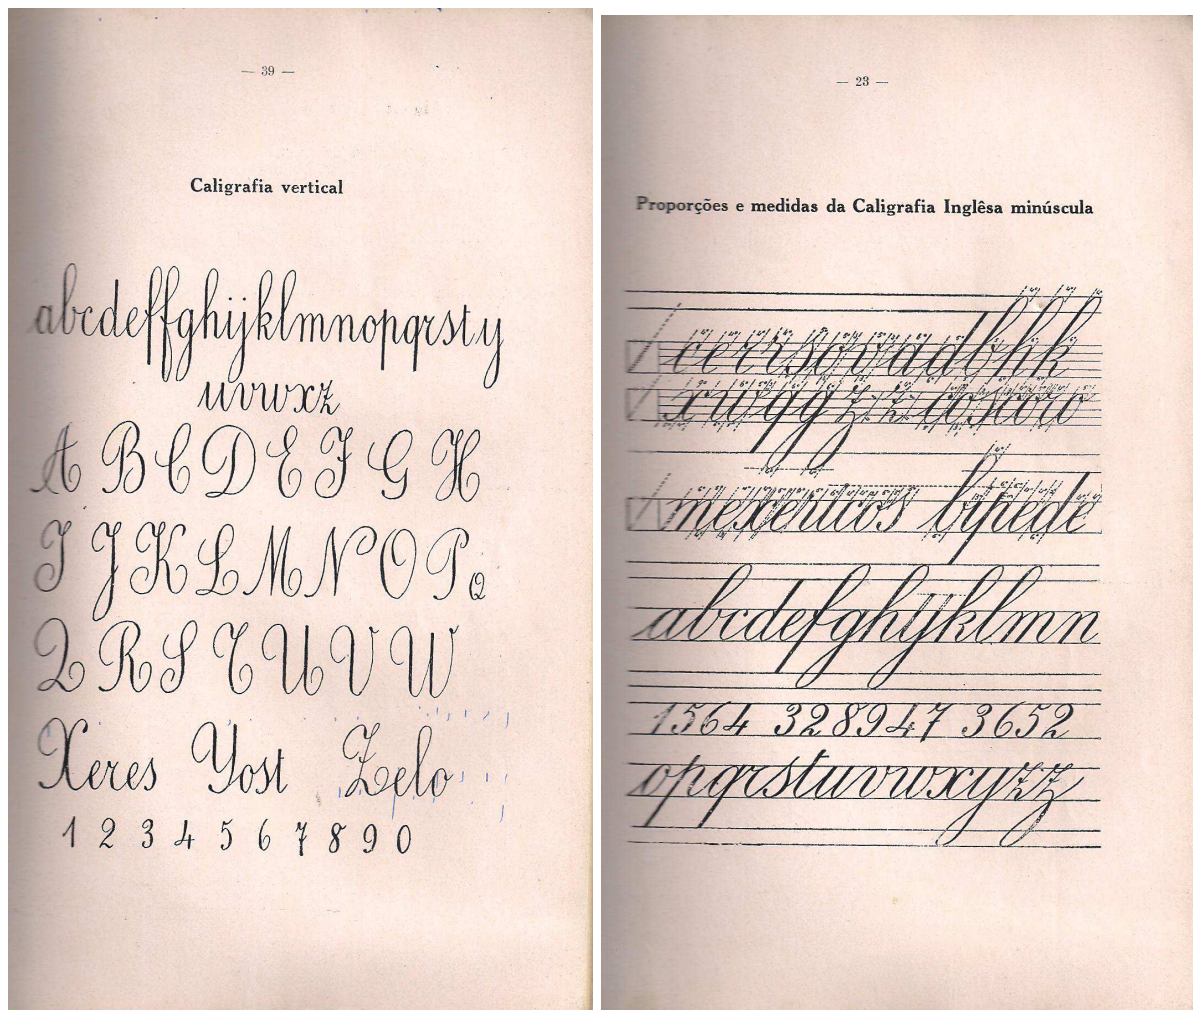 — 39 —
Caligrafia vertical
abcdeffghijklmnopqrsty
uvwxz
A B C D E F G H
I J K L M N O P Q
Q R S T U V W
Xeres Yost Zelo
1 2 3 4 5 6 7 8 9 0
— 23 —
Proporções e medidas da Caligrafia Inglêsa minúscula
mexericos bipede
abcdefghijklmn
1564 328947 3652
opqrstuvwxyzz